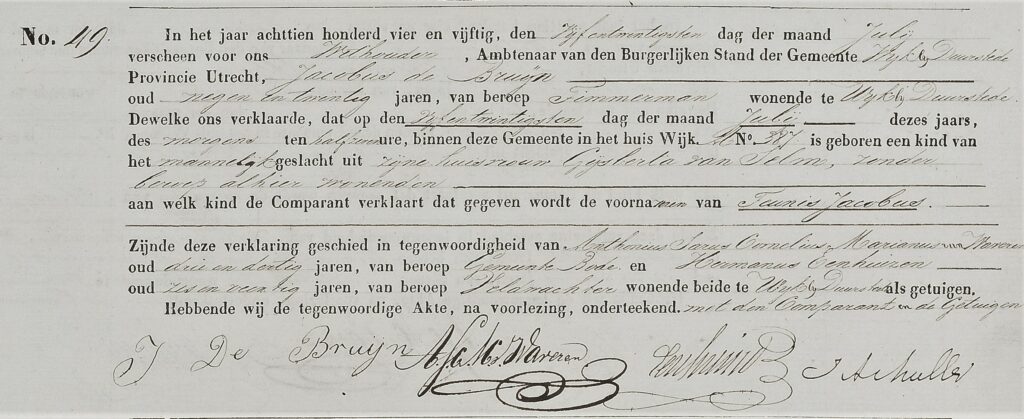 No. 49. In het jaar achttien honderd vier en vijftig, den Vyfentwintigsten dag der maand Juli
verscheen voor ons Wethouder, Ambtenaar van den Burgerlijken Stand der Gemeente Wyk by Duurstede
Provincie Utrecht, Jacobus de Bruyn
oud negen en twintig jaren, van beroep Timmerman wonende te Wyk by Duurstede.
Dewelke ons verklaarde, dat op den Vyfentwintigsten dag der maand Juli dezes jaars,
des morgens ten half ure, binnen deze Gemeente in het huis Wijk No. 327 is geboren een kind van
het mannelyk geslacht uit zyne huisvrouw Gysberta van Selm, zonder
beroep alhier wonenden
aan welk kind de Comparant verklaart dat gegeven wordt de voornamen van Teunis Jacobus.
Zijnde deze verklaring geschied in tegenwoordigheid van Anthonius Cornelius Marianus van Waveren
oud drie en dertig jaren, van beroep Gemeente Bode en Hermanus Eenhuizen
oud zes en veertig jaren, van beroep Veldwachter wonende beide te Wyk by Duurstede als getuigen.
Hebbende wij de tegenwoordige Akte, na voorlezing, onderteekend. met den Comparant en de Getuigen
J De Bruijn Waveren